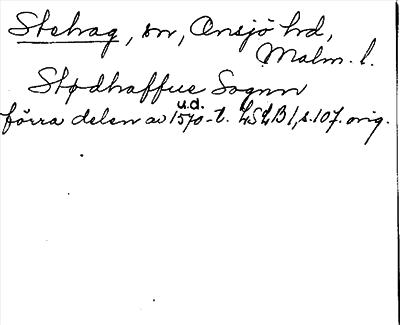 Stehag, sn, Onsjö hd,
Malm. l.
Stødhaffue Sognn
u.d.
förra delen av 1570-t. LSLB 1, s. 107. orig.